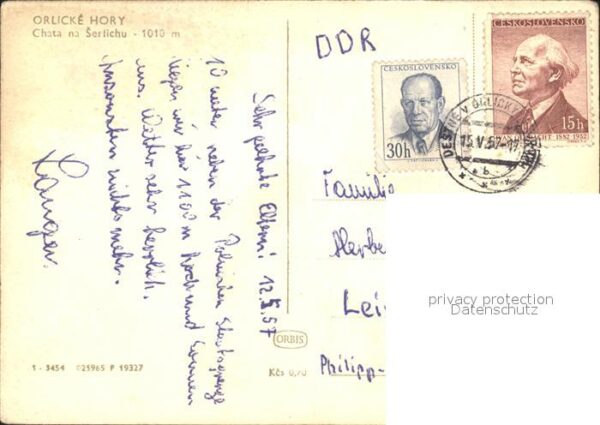 ORLICKÉ HORY
Chata na Šerlichu - 1010 m
DDR
ČESKOSLOVENSKO
30h
ČESKOSLOVENSKO
15h
1882-1952
15.V.57-17
Sehr geehrte Eltern! 12.5.57
10 meter neben der Polnischen Staatsgrenze
liegen wir hier 1100 m hoch und sonnen
uns. Wetter sehr herrlich.
Ansonsten nichts mehr.
Familie
Lei
Philipp-
privacy protection
Datenschutz
ORBIS
1 - 3454 025965 P 19327
Kčs 0,70